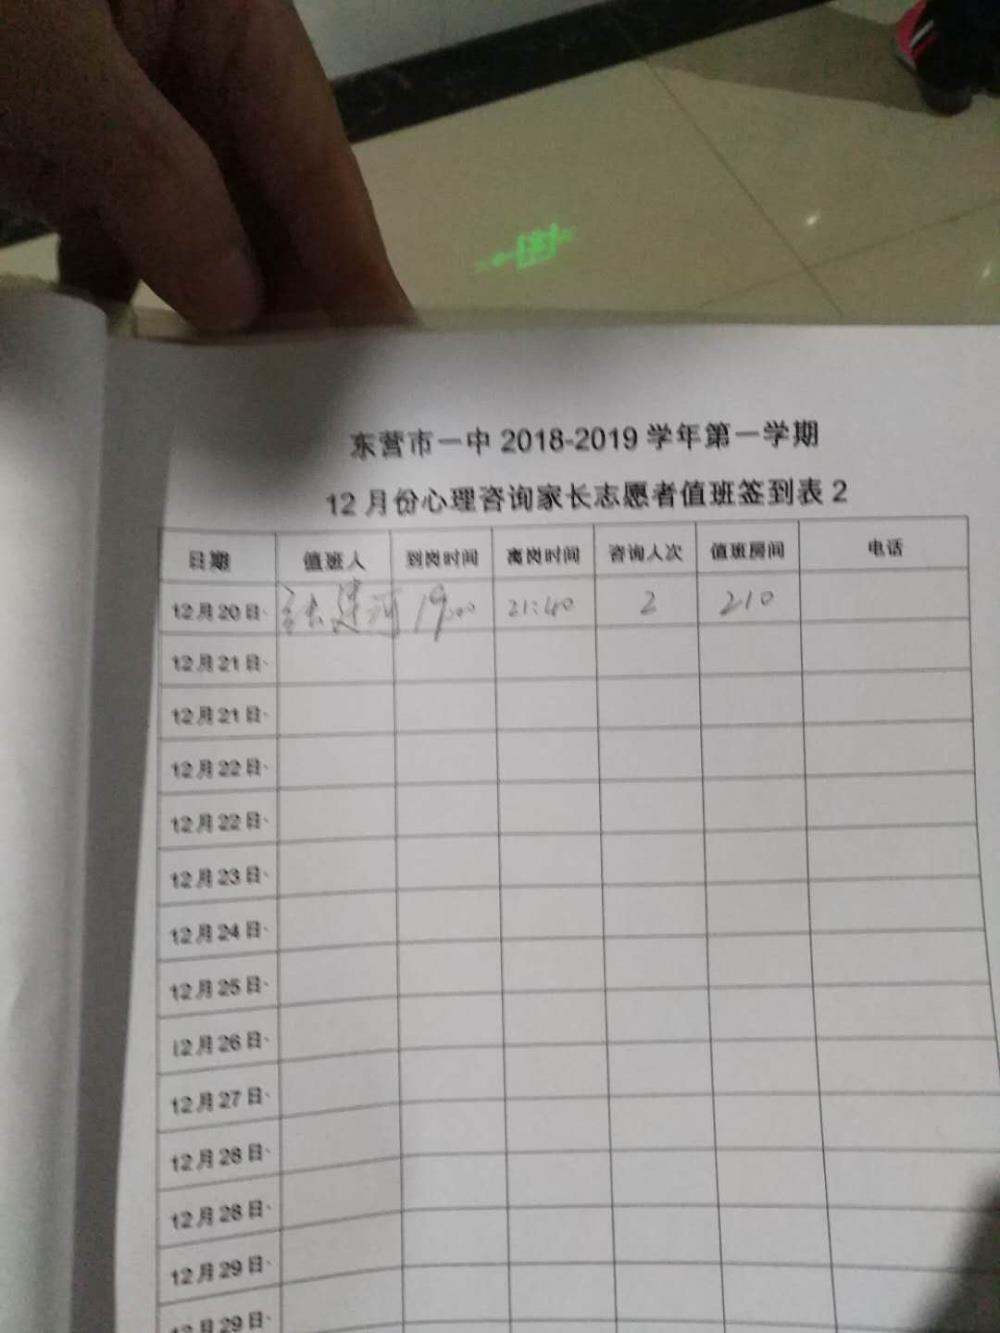 东营市一中 2018-2019 学年第一学期
12 月份心理咨询家长志愿者值班签到表 2
日期 值班人 到岗时间 离岗时间 咨询人次 值班房间 电话
12月20日 19:00 21:40 2 210
12月21日
12月21日
12月22日
12月22日
12月23日
12月24日
12月25日
12月26日
12月27日
12月28日
12月28日
12月29日
12月29日